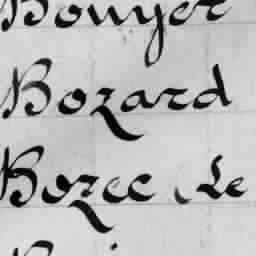 Bouyer
Bozard
Bozec (Le